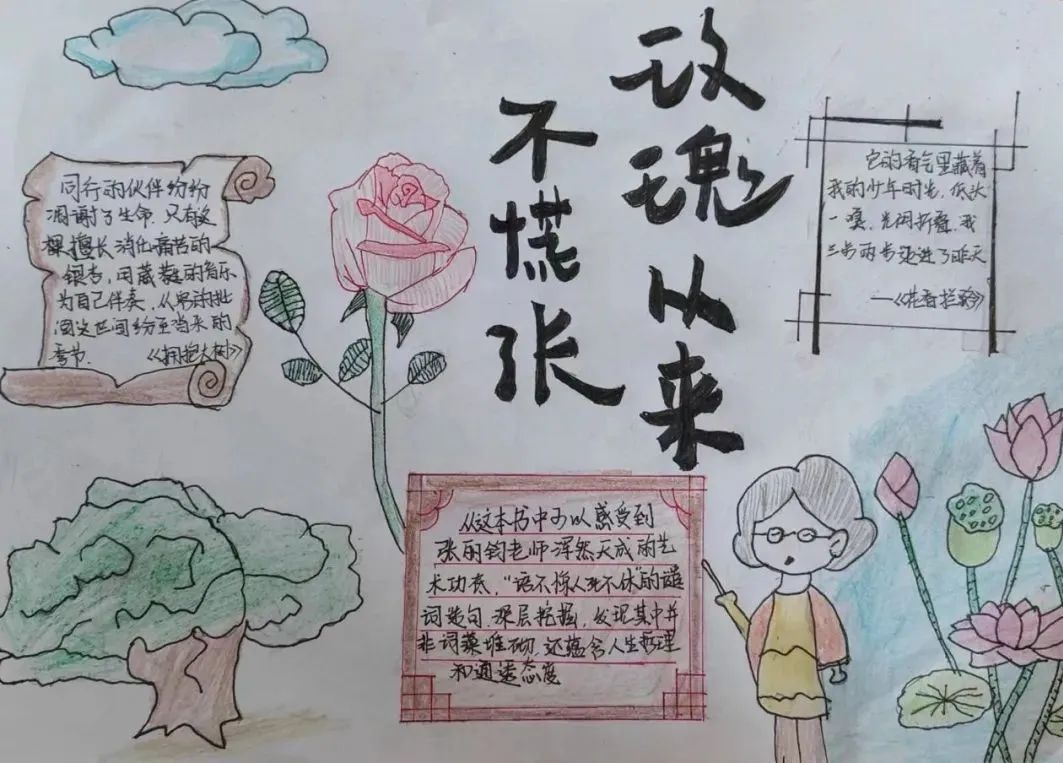 玫瑰从来
不慌张
同行的伙伴纷纷
凋谢了生命,只有这
棵擅长消化痛苦的
银杏,用葳蕤的音乐
为自己伴奏,从
季节. 《拥抱大树》
它的香气里藏着
我的少年时光,低头
一嗅,光阴折叠,我
三步两步迈进了昨天
——《花香拦路》
从这本书中可以感受到
张丽钧老师浑然天成的艺
术功底,“语不惊人死不休”的遣
词造句,深层挖掘,发现其中并
非词藻堆砌,还蕴含人生哲理
和通透态度